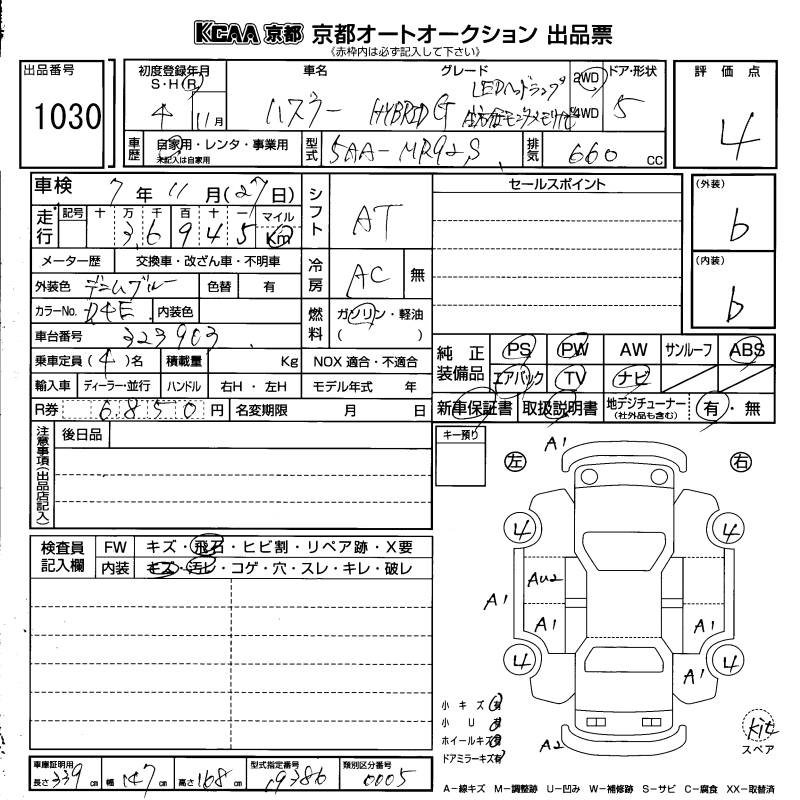 KCAA 京都 京都オートオークション 出品票
《赤枠内は必ず記入して下さい》
出品番号 1030
初度登録年月 S・H・R 4 11月
車名 ハスラー
グレード HYBRID G LEDヘッドランプ
2WD 4WD
ドア・形状 5
評価点 4
車歴 自家用・レンタ・事業用
未記入は自家用
型式 5AA-MR92S
排気 660 CC
車検 7年11月(27日)
走行 記号 十 万 千 百 十 一 マイル
3 6 9 4 5 Km
シフト AT
セールスポイント
(外装) b
(内装) b
メーター歴 交換車・改ざん車・不明車
冷房 AC 無
外装色 デニムブルー 色替 有
カラーNo. D4E 内装色
燃料 ガソリン・軽油
( )
車台番号 323903
乗車定員(4)名 積載量 Kg NOX 適合・不適合
輸入車 ディーラー・並行 ハンドル 右H・左H モデル年式 年
R券 6850円 名変期限 月 日
純正装備品 PS PW AW サンルーフ ABS
エアバック TV ナビ
新車保証書 取扱説明書 地デジチューナー(社外品も含む) 有・無
注意事項(出品店記入) 後日品
キー預り
左 右
A1
4 4
AU2
A1 A1 A1 A1
4 4
A1
A2
検査員記入欄 FW キズ・飛石・ヒビ割・リペア跡・X要
内装 キズ・汚レ・コゲ・穴・スレ・キレ・破レ
小キズ
小U
ホイールキズ
ドアミラーキズ
kit
スペア
車庫証明用 長さ 339 cm 幅 147 cm 高さ 168 cm
型式指定番号 19386
類別区分番号 0005
A-線キズ M-調整跡 U-凹み W-補修跡 S-サビ C-腐食 XX-取替済